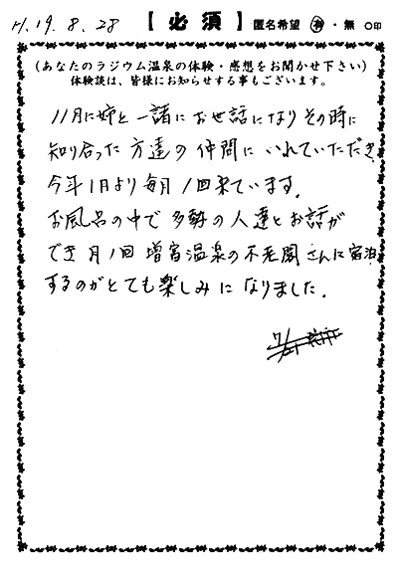 H.19.8.28 【必須】 匿名希望 有・無 ○印
(あなたのラジウム温泉の体験・感想をお聞かせ下さい)
体験談は、皆様にお知らせする事もございます。
11月に姉と一諸にお世話になりその時に
知り合った方達の仲間にいれていただき、
今年1月より毎月1回来ています。
お風呂の中で多勢の人達とお話が
でき月1回増富温泉の不老閣さんに宿泊
するのがとても楽しみになりました。